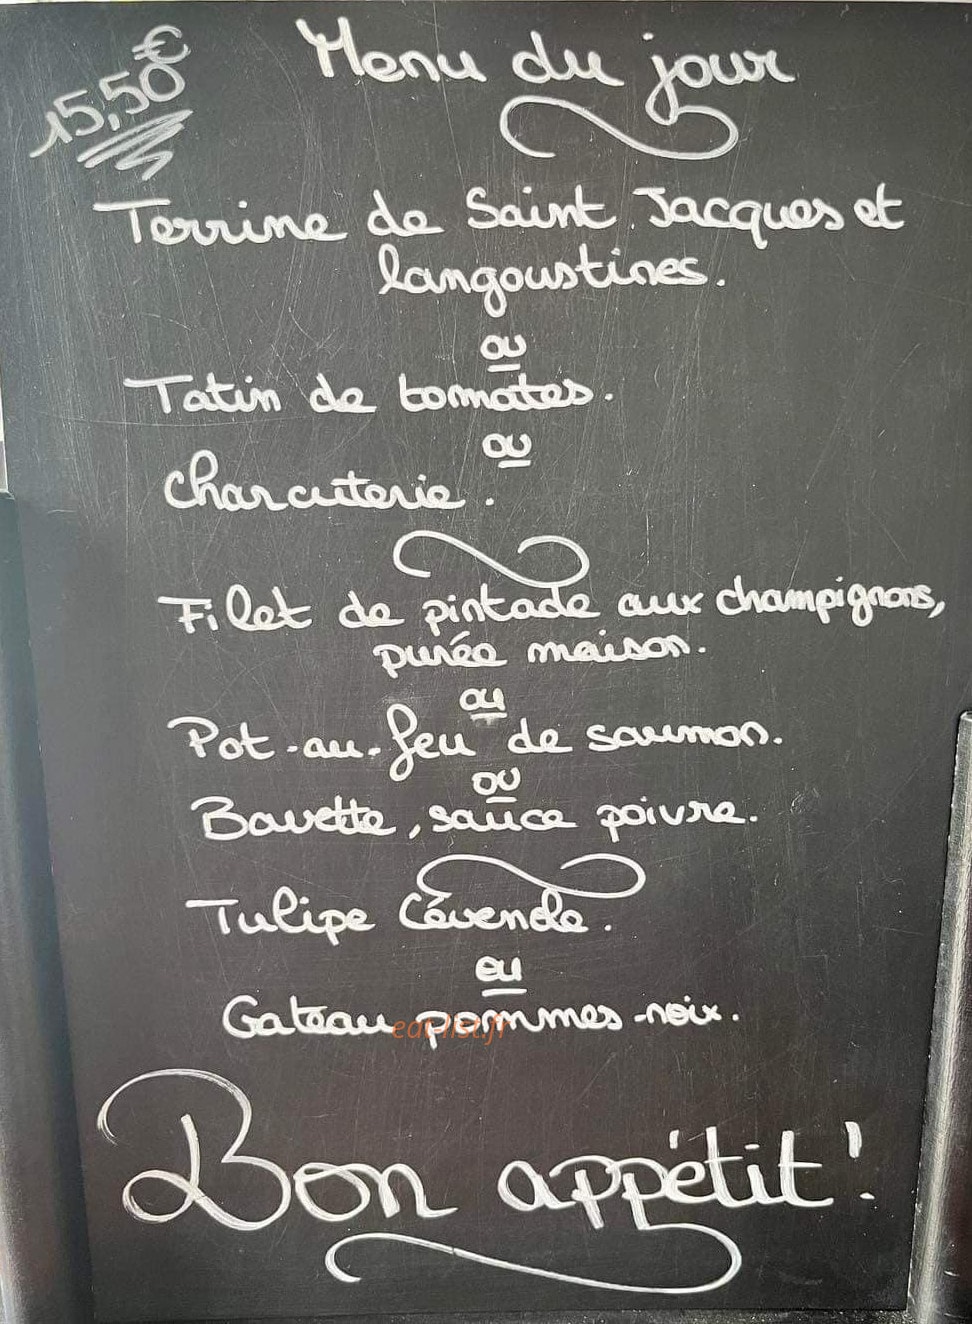 15,50€
Menu du jour
Terrine de Saint Jacques et
langoustines.
ou
Tatin de tomates.
ou
Charcuterie.
Filet de pintade aux champignons,
purée maison.
ou
Pot-au-feu de saumon.
ou
Bavette, sauce poivre.
Tulipe Cévenole.
ou
Gateau pommes-noix.
eat-list.fr
Bon appétit!